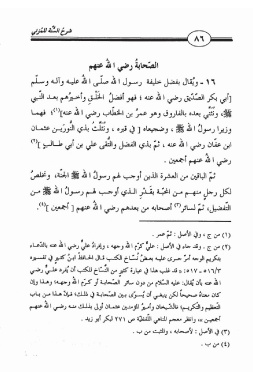 شرح السنة للمزني
٨٦
الصحابة رضي الله عنهم
١٦ - ويقال بفضل خليفة رسول الله صلى الله عليه وآله وسلم
[أبي بكر الصديق رضي الله عنه؛ فهو أفضل الخلق وأخيرهم بعد النبي
ﷺ، ونثني بعده بالفاروق وهو عمر بن الخطاب رضي الله عنه](١)؛ فهما
وزيرا رسول الله ﷺ، وضجيعاه في قبره، ونثلث بذي النورين عثمان
ابن عفان رضي الله عنه، ثم بذي الفضل والتقى علي بن أبي طالب(٢)
رضي الله عنهم أجمعين.
ثم الباقين من العشرة الذين أوجب لهم رسول الله ﷺ الجنة، ونخلص
لكل رجل منهم من المحبة بقدر الذي أوجب لهم رسول الله ﷺ من
التفضيل، ثم لسائر(٣) أصحابه من بعدهم رضي الله عنهم [أجمعين](٤).
(١) من ج، وفي الأصل: ثم عمر.
(٢) من ج، وقد جاء في الأصل: علي كرم الله وجهه،
بتكريم الوجه أمر جرى عليه بعض نساخ الكتب قال الحافظ ابن كثير في تفسيره
٥١٦/٣-٥١٧: قد غلب هذا في عبارة كثير من النساخ للكتب أن يفرد علي رضي
الله عنه بأن يقال: عليه السلام من دون سائر الصحابة أو كرم الله وجهه؛ وهذا وإن
كان معناه صحيحاً لكن ينبغي أن يسوى بين الصحابة في ذلك؛ فهذا من باب
التعظيم والتكريم؛ فالشيخان وأمير المؤمنين عثمان أولى بذلك منه رضي الله عنهم
أجمعين، وانظر معجم المناهي اللفظية ص ٢٧١ لبكر أبو زيد.
(٣) في الأصل: لأصحابه، والمثبت من ب.
(٤) من ب.